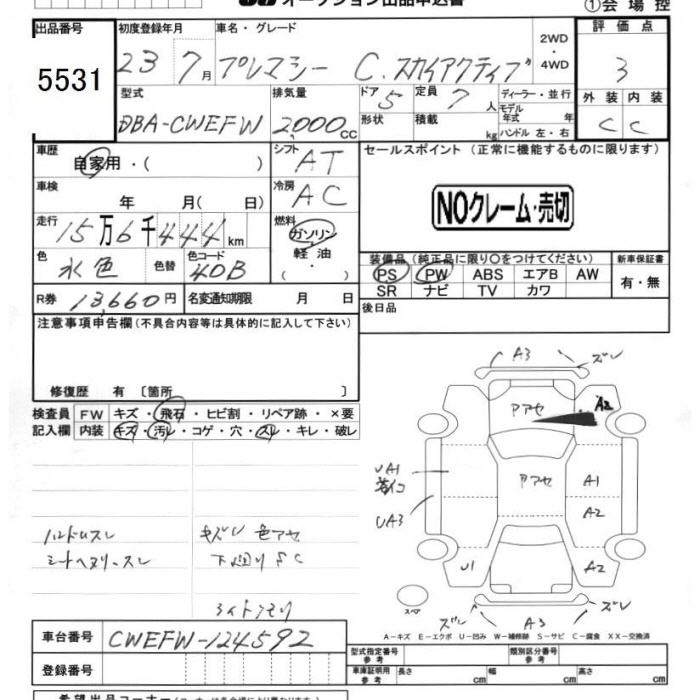 オークション出品申込書
①会場控
出品番号
5531
初度登録年月
23 7月
車名・グレード
プレマシー C.スカイアクティブ
2WD・4WD
評価点
3
型式
DBA-CWEFW
排気量
2,000cc
ドア
5
定員
7人
形状
積載
kg
ディーラー・並行
モデル年式 年
ハンドル 左・右
外装 内装
C C
車歴
自家用・( )
シフト
AT
セールスポイント (正常に機能するものに限ります)
NOクレーム・売切
車検
年 月( 日)
冷房
AC
走行
15万6千444km
燃料
ガソリン
軽油
色
水色
色替
色コード
40B
装備品 (純正品に限り○をつけてください)
PS PW ABS エアB AW
SR ナビ TV カワ
新車保証書
有・無
R券
13,660円
名変通知期限 月 日
後日品
注意事項申告欄 (不具合内容等は具体的に記入して下さい)
修復歴 有 〔箇所 〕
検査員記入欄
FW キズ・飛石・ヒビ割・リペア跡・×要
内装 キズ・汚レ・コゲ・穴・スレ・キレ・破レ
ハンドルスレ
シートヘタリ・スレ
キズレ 色アセ
下廻りSC
ライトクモリ
A3
ズレ
アアセ
A2
UA1
アアセ
A1
UA3
A2
U1
A2
スペア
ズレ
A3
ズレ
A-キズ E-エクボ U-凹み W-補修跡 S-サビ C-腐食 XX-交換済
車台番号
CWEFW-124592
登録番号
型式指定番号
参考
類別区分番号
参考
車庫証明用
参考
長さ cm
幅 cm
高さ cm
希望出品コーナー